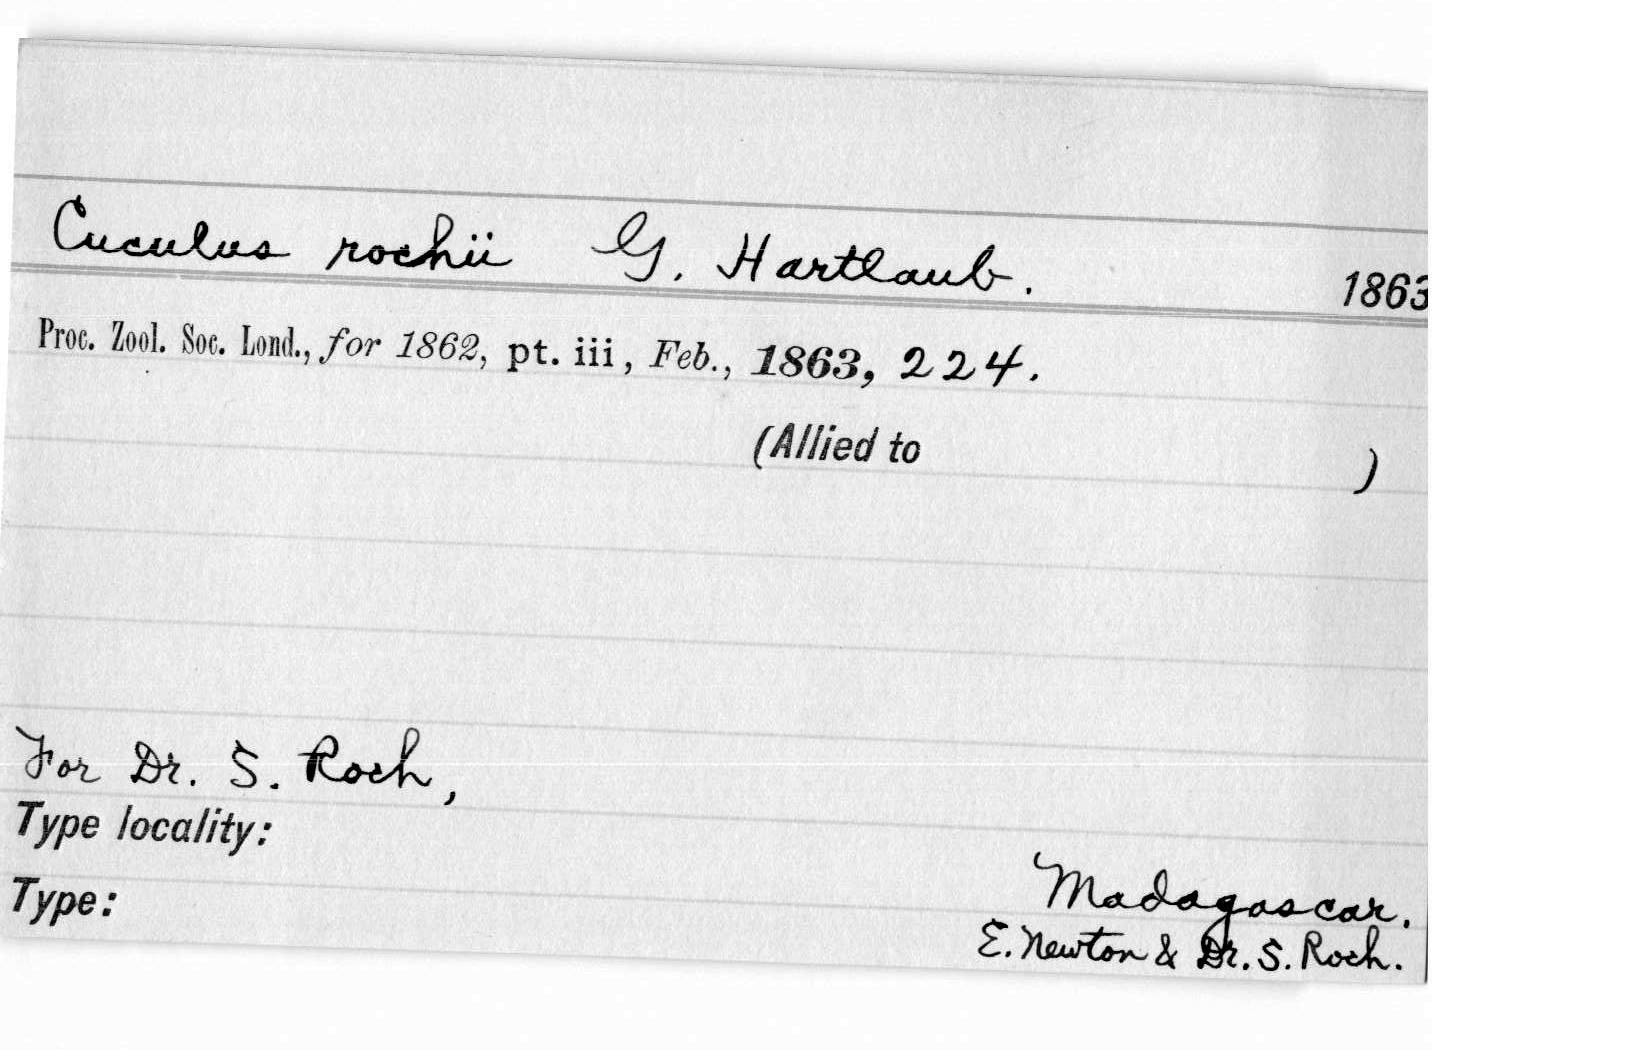 Cuculus rochii G. Hartlaub. 1863
Proc. Zool. Soc. Lond., for 1862, pt. iii, Feb., 1863, 224.
(Allied to )
For Dr. S. Roch,
Type locality:
Madagascar.
Type:
E. Newton & Dr. S. Roch.